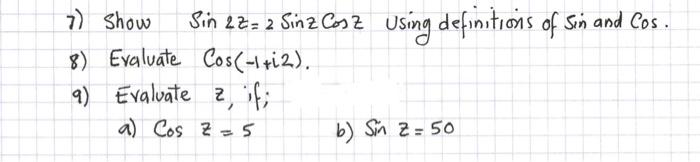 7) Show Sin 2z = 2 Sinz Cosz Using definitions of Sin and Cos.
8) Evaluate Cos(-1+i2).
9) Evaluate z, if;
a) Cos z = 5 b) Sin z = 50